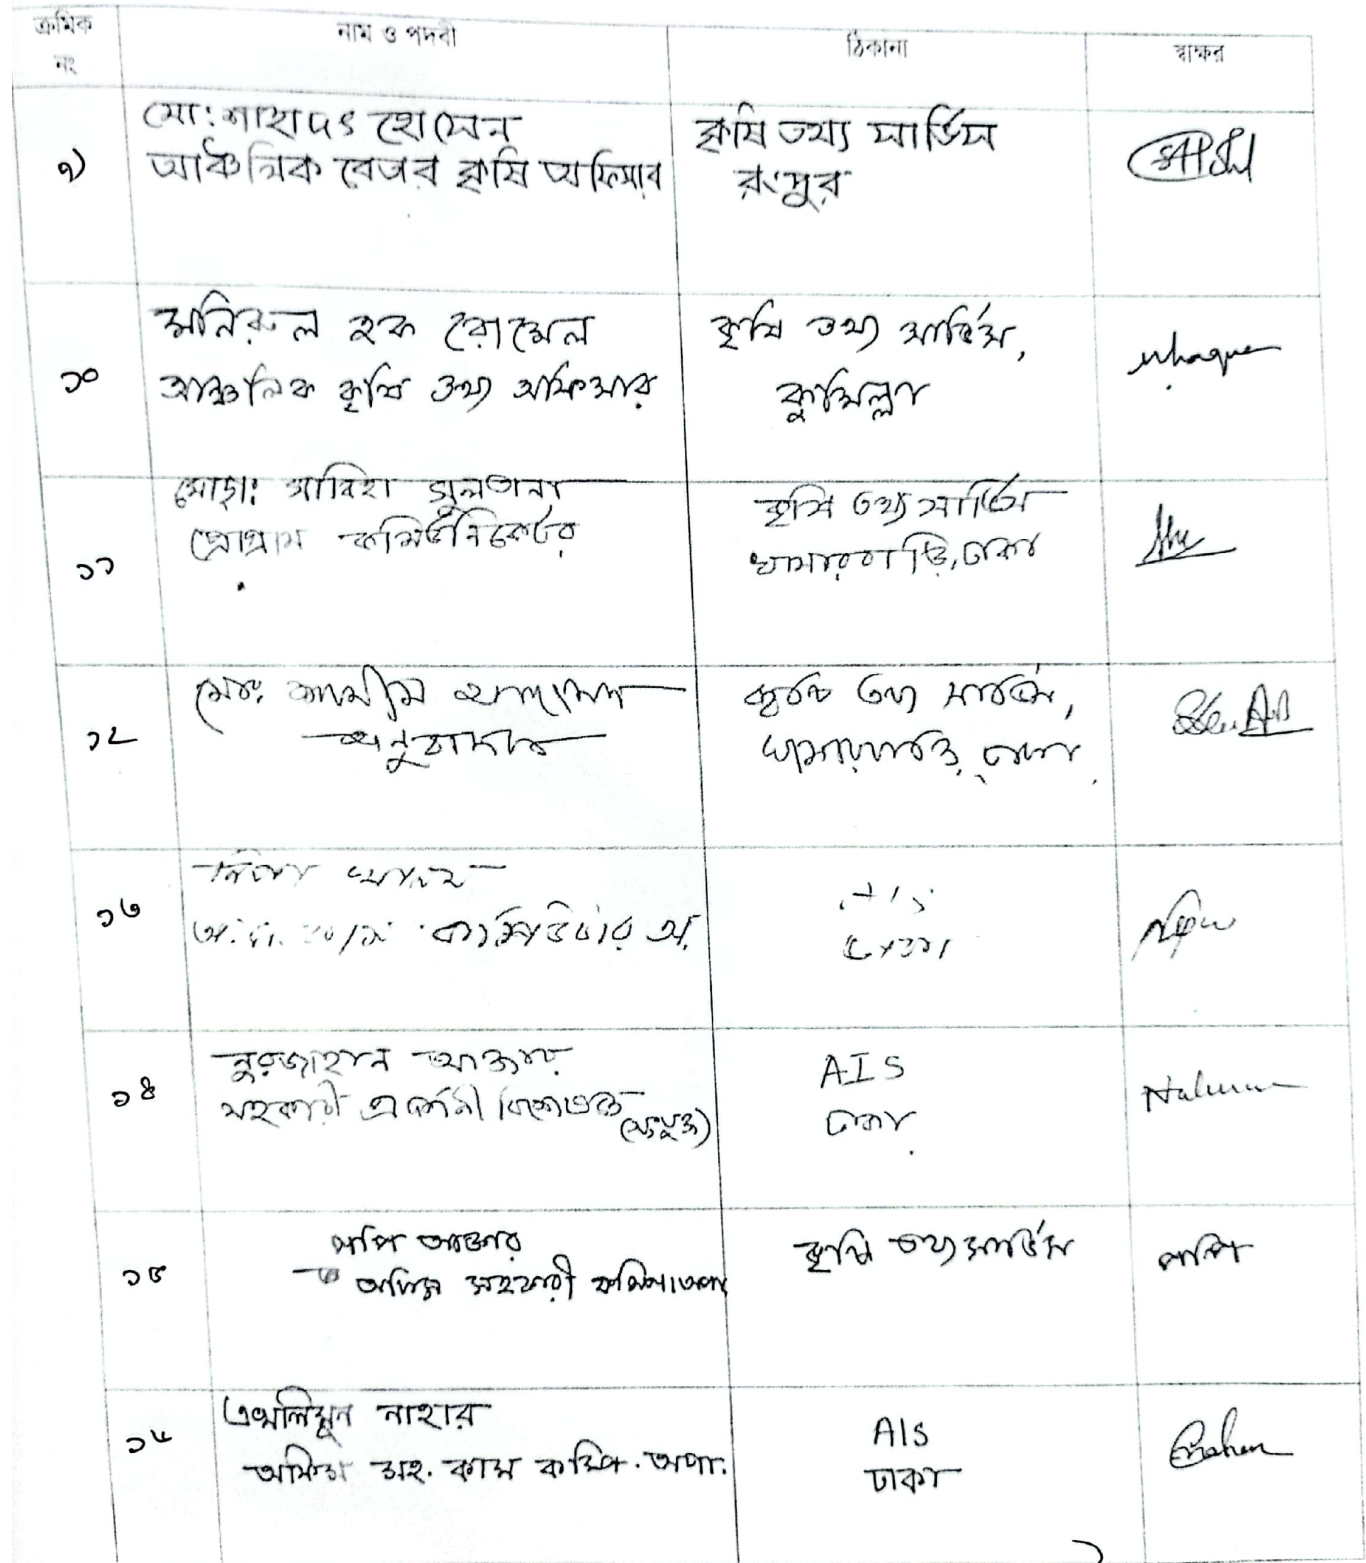 ক্রমিক নং
নাম ও পদবী
ঠিকানা
স্বাক্ষর
৯)
মো: শাহাদৎ হোসেন
আঞ্চলিক বেতার কৃষি অফিসার
কৃষি তথ্য সার্ভিস
রংপুর
১০
মনিরুল হক রোমেল
আঞ্চলিক কৃষি তথ্য অফিসার
কৃষি তথ্য সার্ভিস,
কুমিল্লা
১১
মোছা: সাবিহা সুলতানা
প্রোগ্রাম কমিউনিকেটর
কৃষি তথ্য সার্ভিস
খামারবাড়ি, ঢাকা
১২
মো:
অনুবাদক
কৃষি তথ্য সার্ভিস,
খামারবাড়ি, ঢাকা
১৩
কম্পিউটার অ.
১৪
নুরজাহান আক্তার
সহকারী প্রদর্শনী বিশেষজ্ঞ
(সংযুক্ত)
AIS
ঢাকা
১৫
পপি আক্তার
অফিস সহকারী
কৃষি তথ্য সার্ভিস
পপি
১৬
নাহার
অফিস সহ. কাম কম্পি. অপা.
AIS
ঢাকা